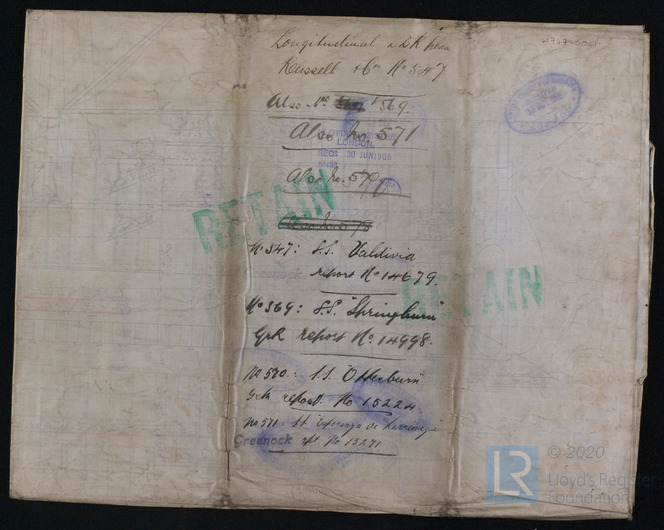 Longitudinal & DK plan
Russell & Co. No 547
Also No. 569.
Also No. 571
LLOYD'S REGISTER
LONDON.
RECD. 30 JUN 1905
Also No. 570
RETAIN
No 547: S.S. Valdivia
Greenock report No 14679.
RETAIN
No 569: S.S. "Springburn"
Grk report No. 14998.
No 570: S.S. "Otterburn"
Grk report. No 15224
No 571: SS "Esperanza de Larrinaga"
Greenock rpt No 15271
© 2020
LR
Lloyd's Register
Foundation